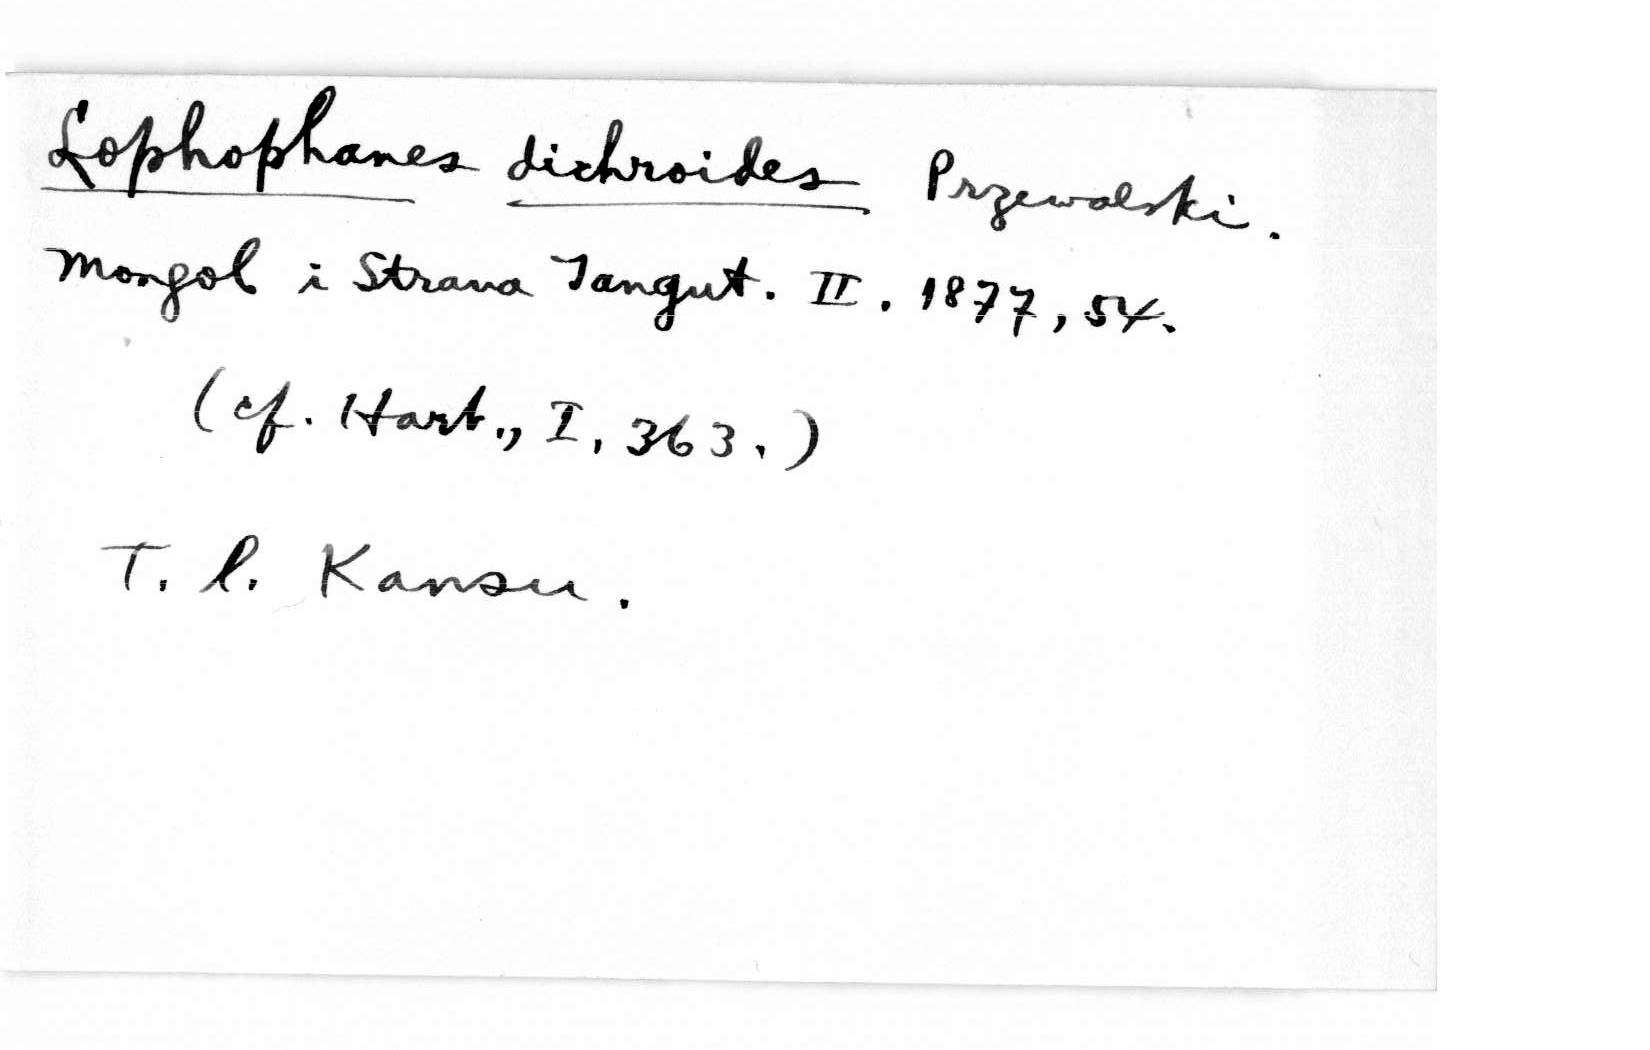 Lophophanes dichroides Przewalski.
Mongol i Strana Tangut. II. 1877, 54.
(cf. Hart., I, 363.)
T. l. Kansu.